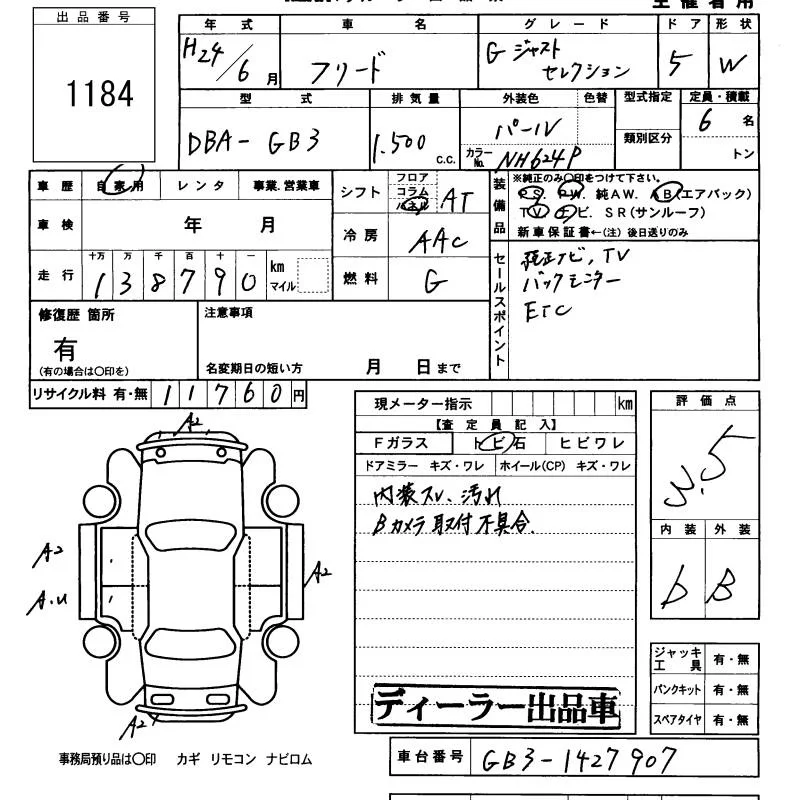 出品番号
1184
年式
H24/6月
車名
フリード
グレード
G ジャスト
セレクション
ドア
5
形状
W
型式
DBA-GB3
排気量
1.500 c.c.
外装色
色替
パール
カラーNo. NH624P
型式指定
類別区分
定員・積載
6 名
トン
車歴 自家用 レンタ 事業.営業車
車検 年 月
走行 十万 万 千 百 十 一
1 3 8 7 9 0 km マイル
シフト フロア コラム パネル AT
冷房 AAC
燃料 G
装備品
※純正のみ○印をつけて下さい。
PS. PW. 純AW. AB(エアバック)
TV. ナビ. SR(サンルーフ)
新車保証書←(注) 後日送りのみ
セールスポイント
純正ナビ, TV
バックモニター
ETC
修復歴 箇所
有
(有の場合は○印を)
注意事項
名変期日の短い方 月 日まで
リサイクル料 有・無 11760円
現メーター指示 km
【査定員記入】
Fガラス トビ石 ヒビワレ
ドアミラー キズ・ワレ ホイール(CP) キズ・ワレ
内装スレ、汚れ
Bカメラ取付不具合.
ディーラー出品車
評価点
3.5
内装 外装
b B
ジャッキ
工具 有・無
パンクキット 有・無
スペアタイヤ 有・無
A2
A2
A.U
A2
A2
事務局預り品は○印 カギ リモコン ナビロム
車台番号 GB3-1427907